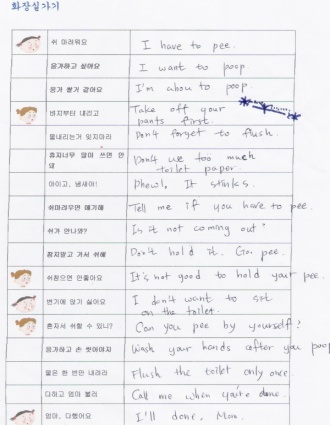 화장실가기
쉬 마려워요
I have to pee.
응가하고 싶어요
I want to poop
응가 쌀거 같아요
I'm abou to poop.
바지부터 내리고
Take off your
pants first.
물내리는거 잊지마라
Don't forget to flush.
휴지너무 많이 쓰면 안
돼
Don't use too much
toilet paper.
아이고, 냄새야!
Phew!. It stinks.
쉬마려우면 얘기해
Tell me if you have to pee.
쉬가 안나와?
Is it not coming out?
참지말고 가서 쉬해
Don't hold it. Go. pee.
쉬참으면 안좋아요
It's not good to hold your pee.
변기에 앉기 싫어요
I don't want to sit
on the toilet.
혼자서 쉬할 수 있니?
Can you pee by yourself?
응가하고 손 씻어야지
Wash your hands after you poop
물은 한 번만 내려라
Flush the toilet only once.
다하고 엄마 불러
Call me when you're done.
엄마, 다했어요
I'll done, Mom.